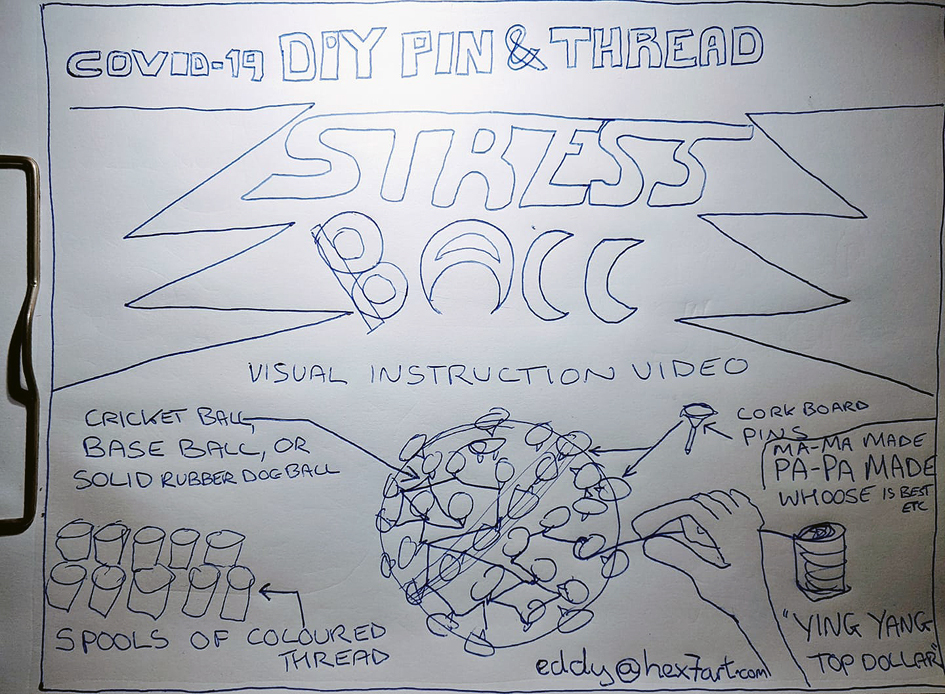 COVID-19 DIY PIN & THREAD
STRESS
BALL
VISUAL INSTRUCTION VIDEO
CRICKET BALL,
BASE BALL, OR
SOLID RUBBER DOG BALL
CORK BOARD
PINS
MA-MA MADE
PA-PA MADE
WHOOSE IS BEST
ETC
SPOOLS OF COLOURED
THREAD
"YING YANG
TOP DOLLAR"
eddy@hex7art.com